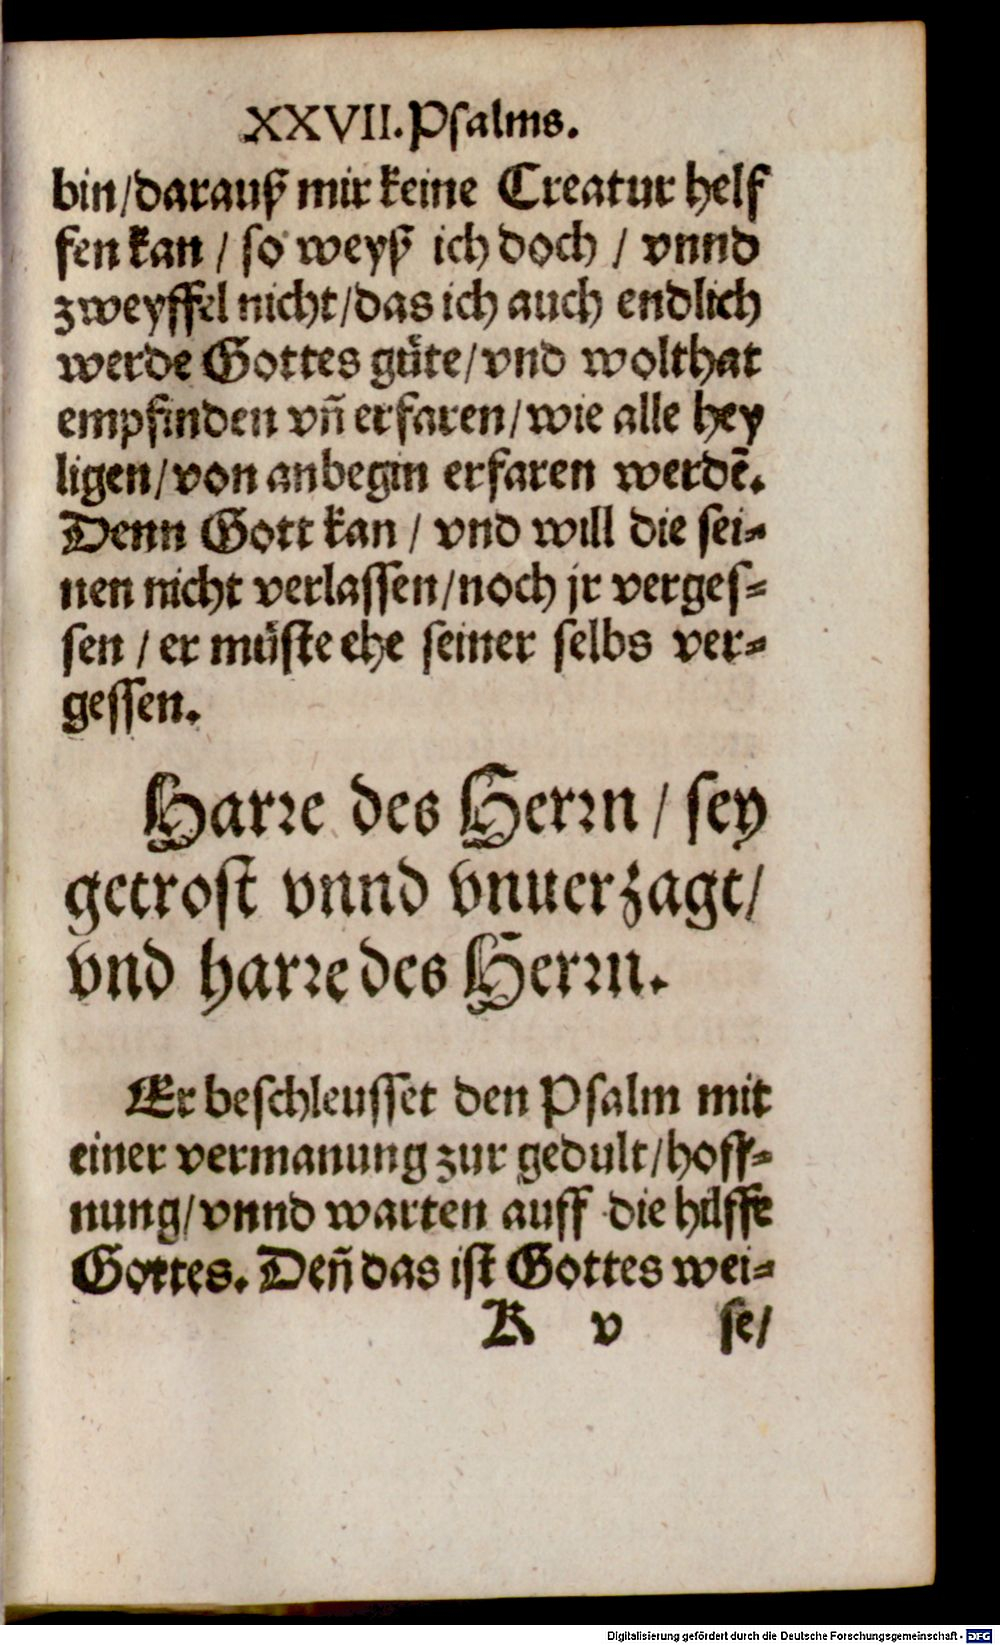 XXVII. Psalms.
bin/darauß mir keine Creatur helf
fen kan / so weyß ich doch / vnnd
zweyffel nicht/das ich auch endlich
werde Gottes güte/vnd wolthat
empfinden vñ erfaren/wie alle hey
ligen/von anbegin erfaren werdē.
Denn Gott kan / vnd will die sei-
nen nicht verlassen/noch jr verges-
sen / er müste ehe seiner selbs ver-
gessen.
Harre des Herrn / sey
getrost vnnd vnuerzagt/
vnd harre des Herrn.
Er beschleusset den Psalm mit
einer vermanung zur gedult/hoff-
nung/vnnd warten auff die hilffe
Gottes. Deñ das ist Gottes wei-
K v se/
Digitalisierung gefördert durch die Deutsche Forschungsgemeinschaft - DFG